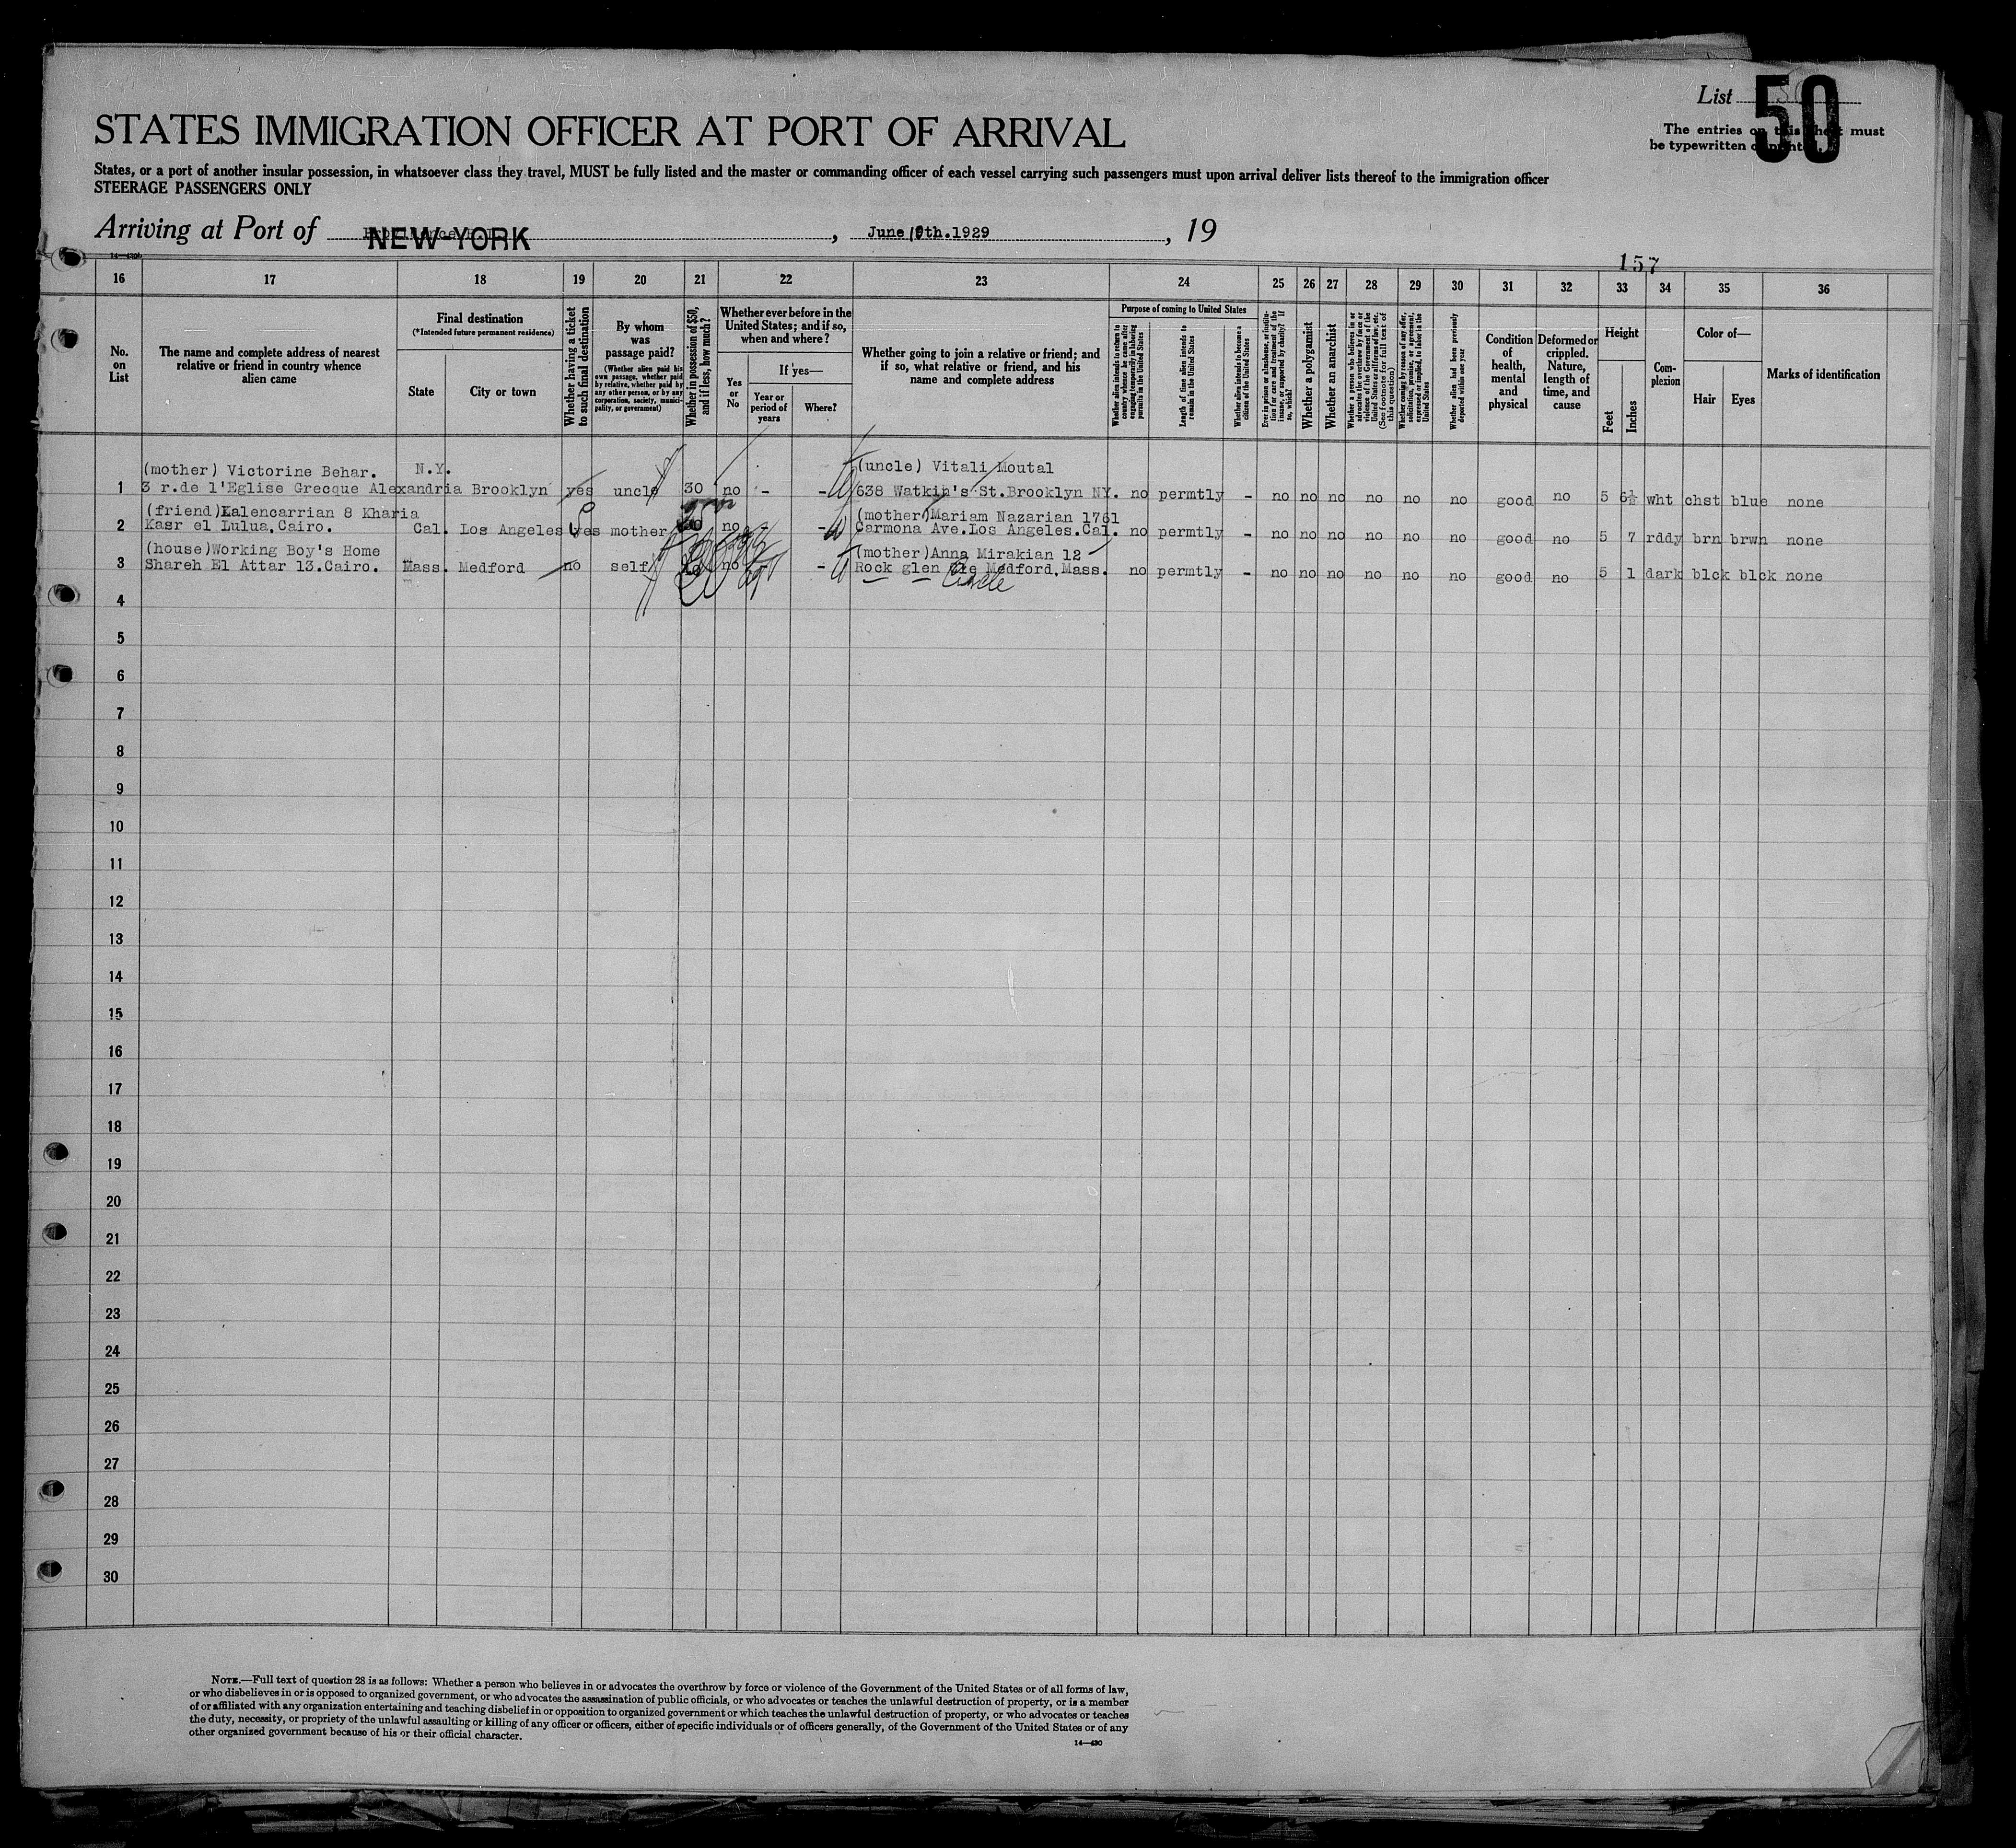 List 50
50
The entries on this sheet must
be typewritten or printed.
STATES IMMIGRATION OFFICER AT PORT OF ARRIVAL
States, or a port of another insular possession, in whatsoever class they travel, MUST be fully listed and the master or commanding officer of each vessel carrying such passengers must upon arrival deliver lists thereof to the immigration officer
STEERAGE PASSENGERS ONLY
Arriving at Port of NEW-YORK, June 10th.1929, 19
14—430
157
16 17 18 19 20 21 22 23 24 25 26 27 28 29 30 31 32 33 34 35 36
No. on List
The name and complete address of nearest relative or friend in country whence alien came
Final destination
(*Intended future permanent residence)
State
City or town
Whether having a ticket to such final destination
By whom was passage paid?
(Whether alien paid his own passage, whether paid by relative, whether paid by any other person, or by any corporation, society, municipality, or government)
Whether in possession of $50, and if less, how much?
Whether ever before in the United States; and if so, when and where?
Yes or No
If yes—
Year or period of years
Where?
Whether going to join a relative or friend; and if so, what relative or friend, and his name and complete address
Purpose of coming to United States
Whether alien intends to return to country whence he came after engaging temporarily in laboring pursuits in the United States
Length of time alien intends to remain in the United States
Whether alien intends to become a citizen of the United States
Ever in prison or almshouse, or institution for care and treatment of the insane, or supported by charity? If so, which?
Whether a polygamist
Whether an anarchist
Whether a person who believes in or advocates the overthrow by force or violence of the Government of the United States or all forms of law, etc. (See footnote for full text of this question)
Whether coming by reason of any offer, solicitation, promise, or agreement, expressed or implied, to labor in the United States
Whether alien had been previously deported within one year
Condition of health, mental and physical
Deformed or crippled. Nature, length of time, and cause
Height
Feet
Inches
Complexion
Color of—
Hair
Eyes
Marks of identification
(mother) Victorine Behar. N.Y. (uncle) Vitali Moutal
1 3 r.de l'Eglise Grecque Alexandria Brooklyn yes uncle 30 no - - 638 Watkin's St.Brooklyn NY. no permtly - no no no no no no good no 5 6½ wht chst blue none
(friend)Kalencarrian 8 Kharia (mother)Mariam Nazarian 1761
2 Kasr el Lulua.Cairo. Cal. Los Angeles yes mother no - - Carmona Ave.Los Angeles.Cal. no permtly - no no no no no no good no 5 7 rddy brn brwn none
(house)Working Boy's Home (mother)Anna Mirakian 12
3 Shareh El Attar 13.Cairo. Mass. Medford no self no - Rock glen Cle Medford,Mass. no permtly - no no no no no no good no 5 1 dark blck blck none
Circle
4
5
6
7
8
9
10
11
12
13
14
15
16
17
18
19
20
21
22
23
24
25
26
27
28
29
30
NOTE.—Full text of question 28 is as follows: Whether a person who believes in or advocates the overthrow by force or violence of the Government of the United States or of all forms of law,
or who disbelieves in or is opposed to organized government, or who advocates the assassination of public officials, or who advocates or teaches the unlawful destruction of property, or is a member
of or affiliated with any organization entertaining and teaching disbelief in or opposition to organized government or which teaches the unlawful destruction of property, or who advocates or teaches
the duty, necessity, or propriety of the unlawful assaulting or killing of any officer or officers, either of specific individuals or of officers generally, of the Government of the United States or of any
other organized government because of his or their official character.
14—430